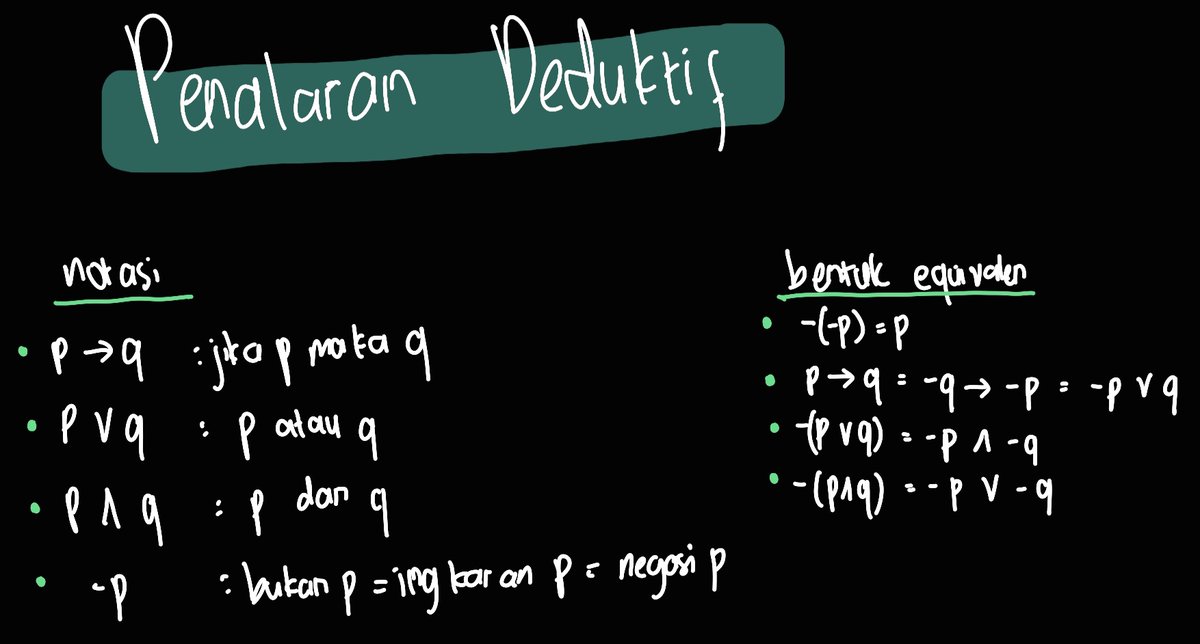 Penalaran Deduktif
notasi
• p → q : jika p maka q
• p ∨ q : p atau q
• p ∧ q : p dan q
• -p : bukan p = ingkaran p = negasi p
bentuk equivalen
• -(-p) = p
• p → q = -q → -p = -p ∨ q
• -(p ∨ q) = -p ∧ -q
• -(p∧q) = -p ∨ -q